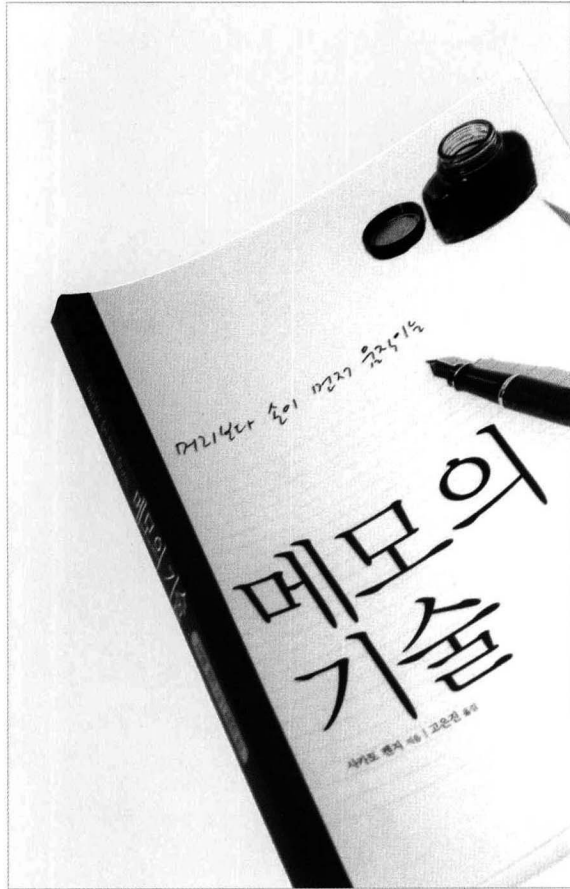 머리보다 손이 먼저 움직이는
메모의
기술
사카토 켄지 지음 | 고은진 옮김
메모의 기술